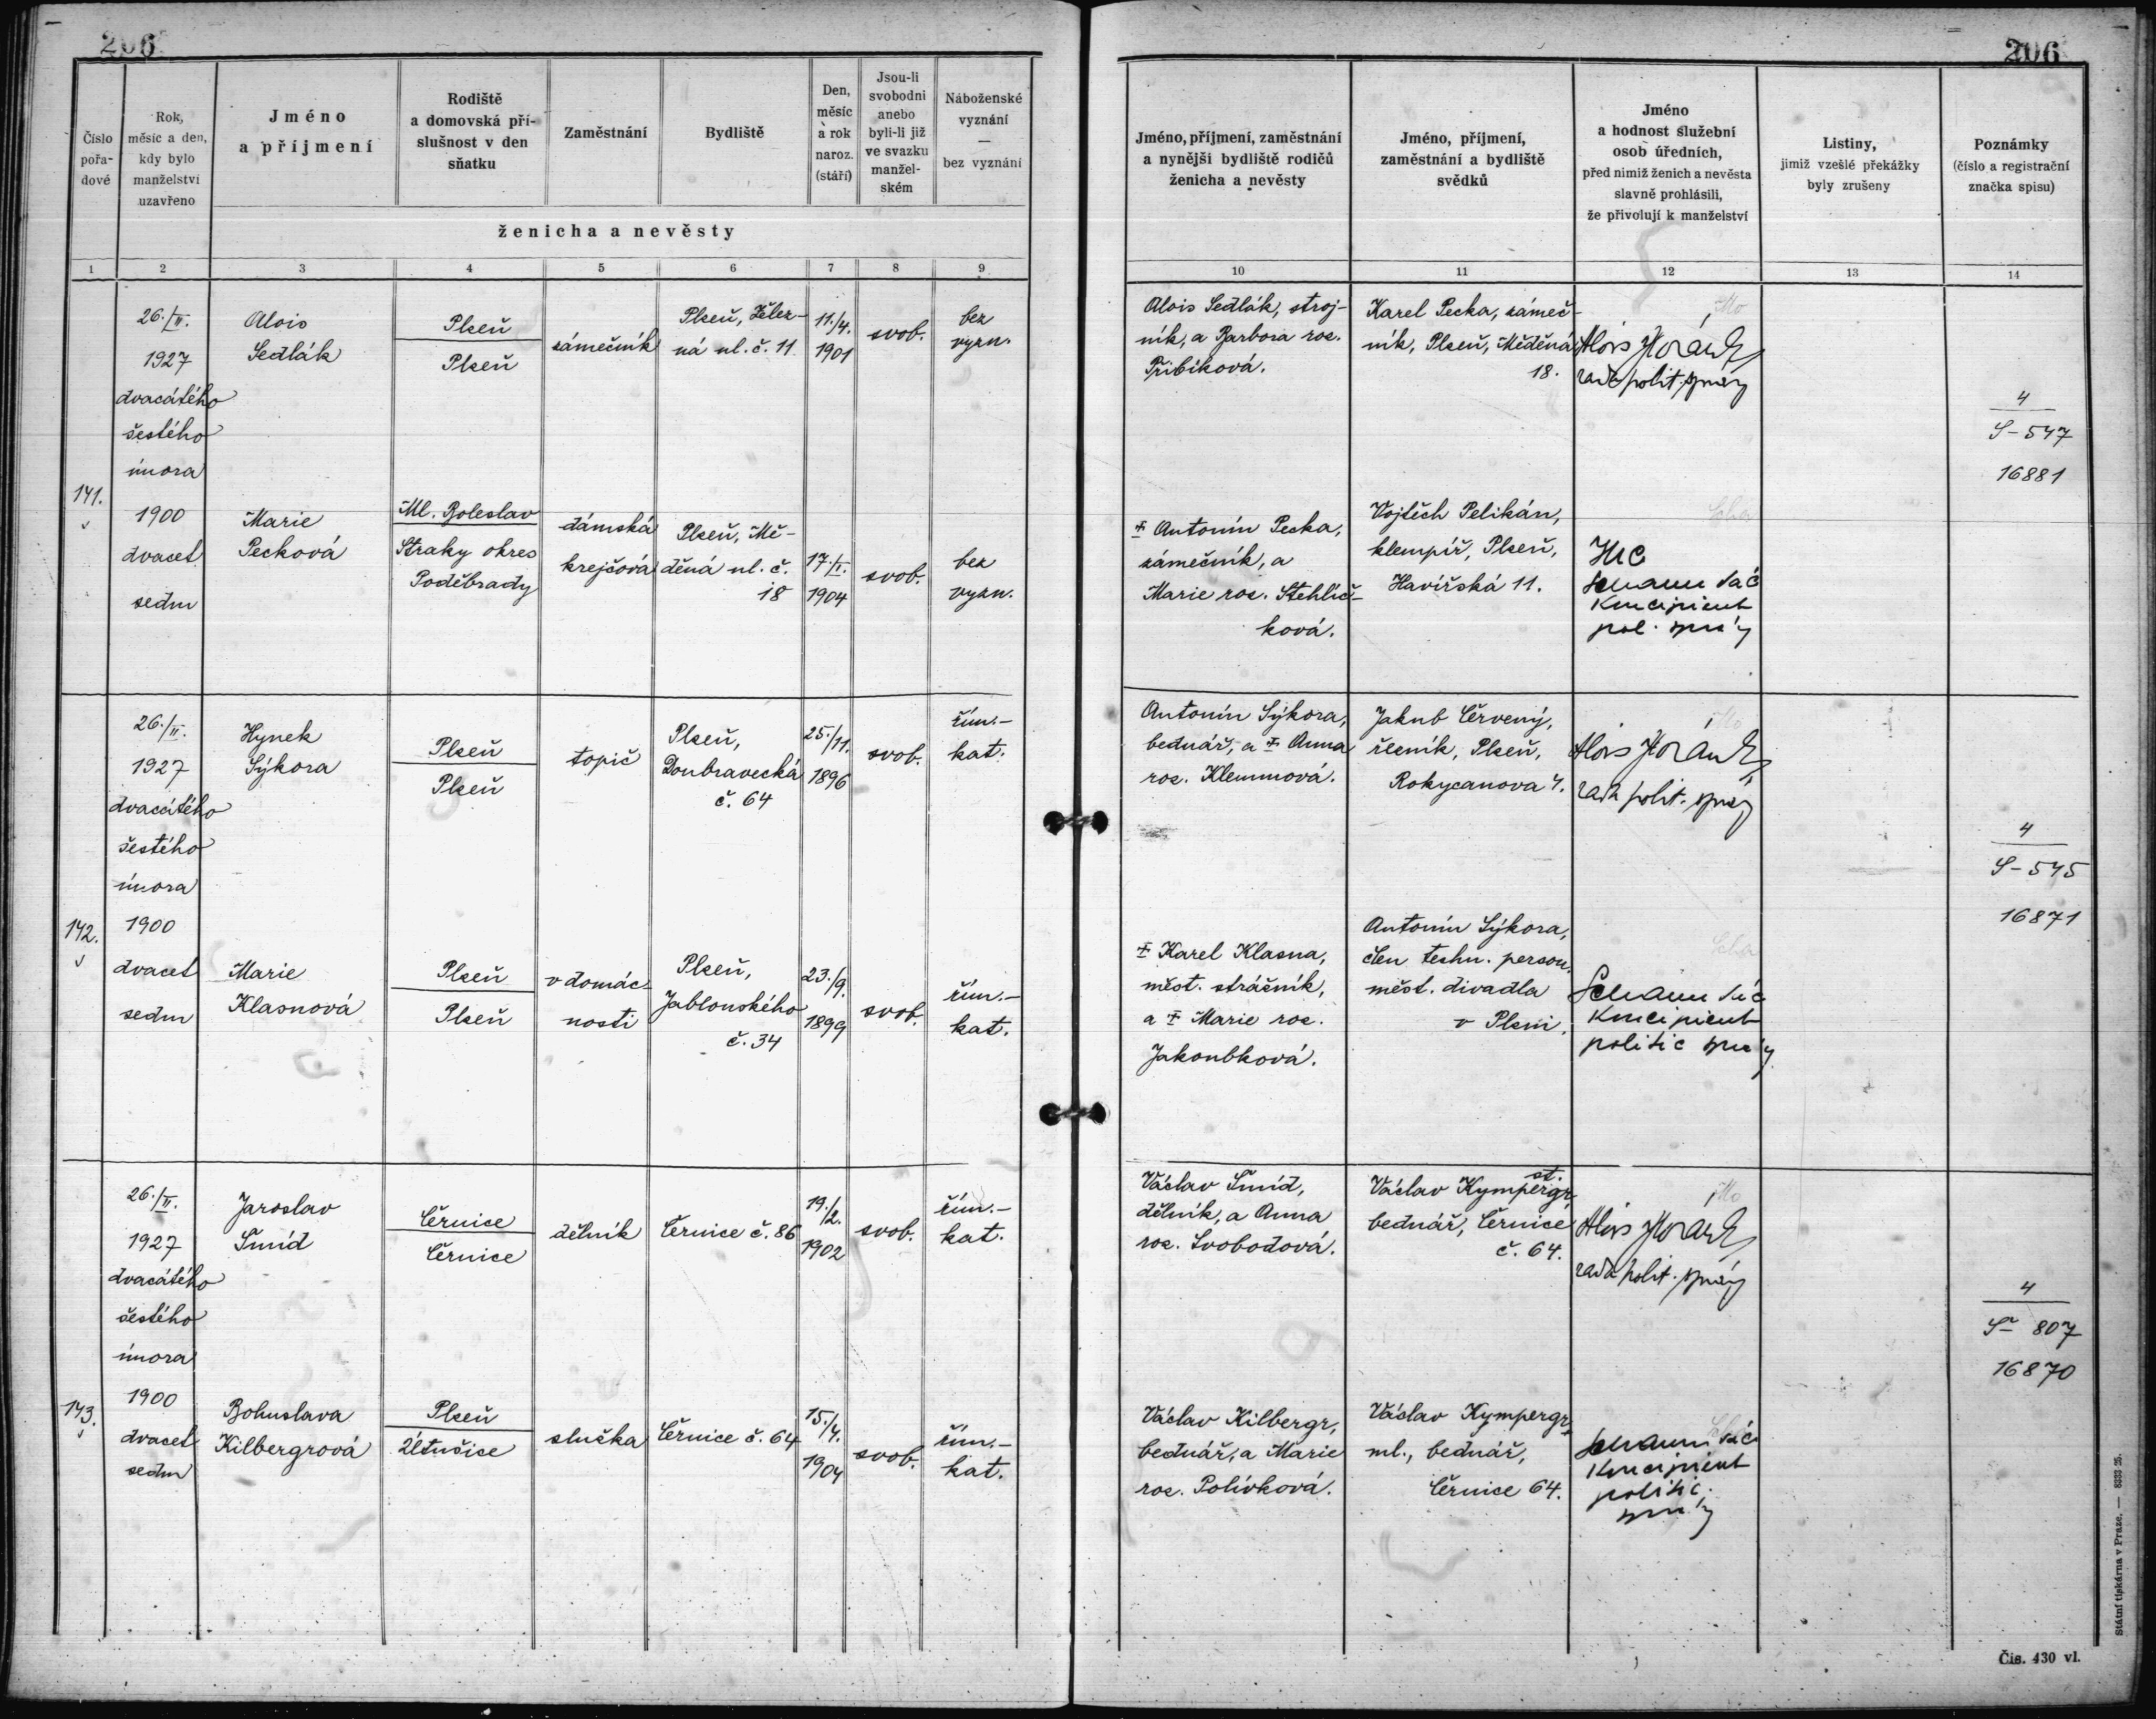 206
206
Číslo
pořa-
dové
Rok,
měsíc a den,
kdy bylo
manželství
uzavřeno
Jméno
a příjmení
Rodiště
a domovská pří-
slušnost v den
sňatku
Zaměstnání
Bydliště
Den,
měsíc
a rok
naroz.
(stáří)
Jsou-li
svobodni
anebo
byli-li již
ve svazku
manžel-
ském
Náboženské
vyznání
—
bez vyznání
ženicha a nevěsty
Jméno, příjmení, zaměstnání
a nynější bydliště rodičů
ženicha a nevěsty
Jméno, příjmení,
zaměstnání a bydliště
svědků
Jméno
a hodnost služební
osob úředních,
před nimiž ženich a nevěsta
slavně prohlásili,
že přivolují k manželství
Listiny,
jimiž vzešlé překážky
byly zrušeny
Poznámky
(číslo a registrační
značka spisu)
1 2 3 4 5 6 7 8 9
10 11 12 13 14
141.
26./II.
1927
dvacátého
šestého
února
1900
dvacet
sedm
Alois
Sedlák
Plzeň
Plzeň
zámečník
Plzeň, Želez-
ná ul. č. 11
11./4.
1901
svob.
bez
vyzn.
Alois Sedlák, stroj-
ník, a Barbora roz.
Přibíková.
Karel Pecka, zámeč-
ník, Plzeň, Měděná
18.
Mo
Alois Horák
rada polit. správy
4
S-547
16881
Marie
Pecková
Ml. Boleslav
Straky okres
Poděbrady
dámská
krejčová
Plzeň, Mě-
děná ul. č.
18
17./I.
1904
svob.
bez
vyzn.
‡ Antonín Pecka,
zámečník, a
Marie roz. Stehlíč-
ková.
Vojtěch Pelikán,
klempíř, Plzeň,
Havířská 11.
Scha
koncipient
pol. správy
142.
26./II.
1927
dvacátého
šestého
února
1900
dvacet
sedm
Hynek
Sýkora
Plzeň
Plzeň
topič
Plzeň,
Doubravecká
č. 64
25./11.
1896
svob.
řím.-
kat.
Antonín Sýkora,
bednář, a ‡ Anna
roz. Klemmová.
Jakub Červený,
řezník, Plzeň,
Rokycanova 4.
Mo
Alois Horák
rada polit. správy
4
S-545
16871
Marie
Klasnová
Plzeň
Plzeň
v domác-
nosti
Plzeň,
Jablonského
č. 34
23./9.
1899
svob.
řím.-
kat.
‡ Karel Klasna,
měst. strážník,
a ‡ Marie roz.
Jakoubková.
Antonín Sýkora,
člen techn. person.
měst. divadla
v Plzni.
Scha
koncipient
politic správy
143.
26./II.
1927
dvacátého
šestého
února
1900
dvacet
sedm
Jaroslav
Šmíd
Černice
Černice
dělník
Černice č. 86
19./2.
1902
svob.
řím.-
kat.
Václav Šmíd,
dělník, a Anna
roz. Svobodová.
Václav Kympergr st.
bednář, Černice
č. 64.
Mo
Alois Horák
rada polit. správy
4
Š- 807
16870
Bohuslava
Kilbergrová
Plzeň
Útušice
služka
Černice č. 64
15./4.
1904
svob.
řím.-
kat.
Václav Kilbergr,
bednář, a Marie
roz. Polívková.
Václav Kympergr
ml., bednář,
Černice 64.
koncipient
politic.
správy
Státní tiskárna v Praze. — 8333 25.
Čís. 430 vl.